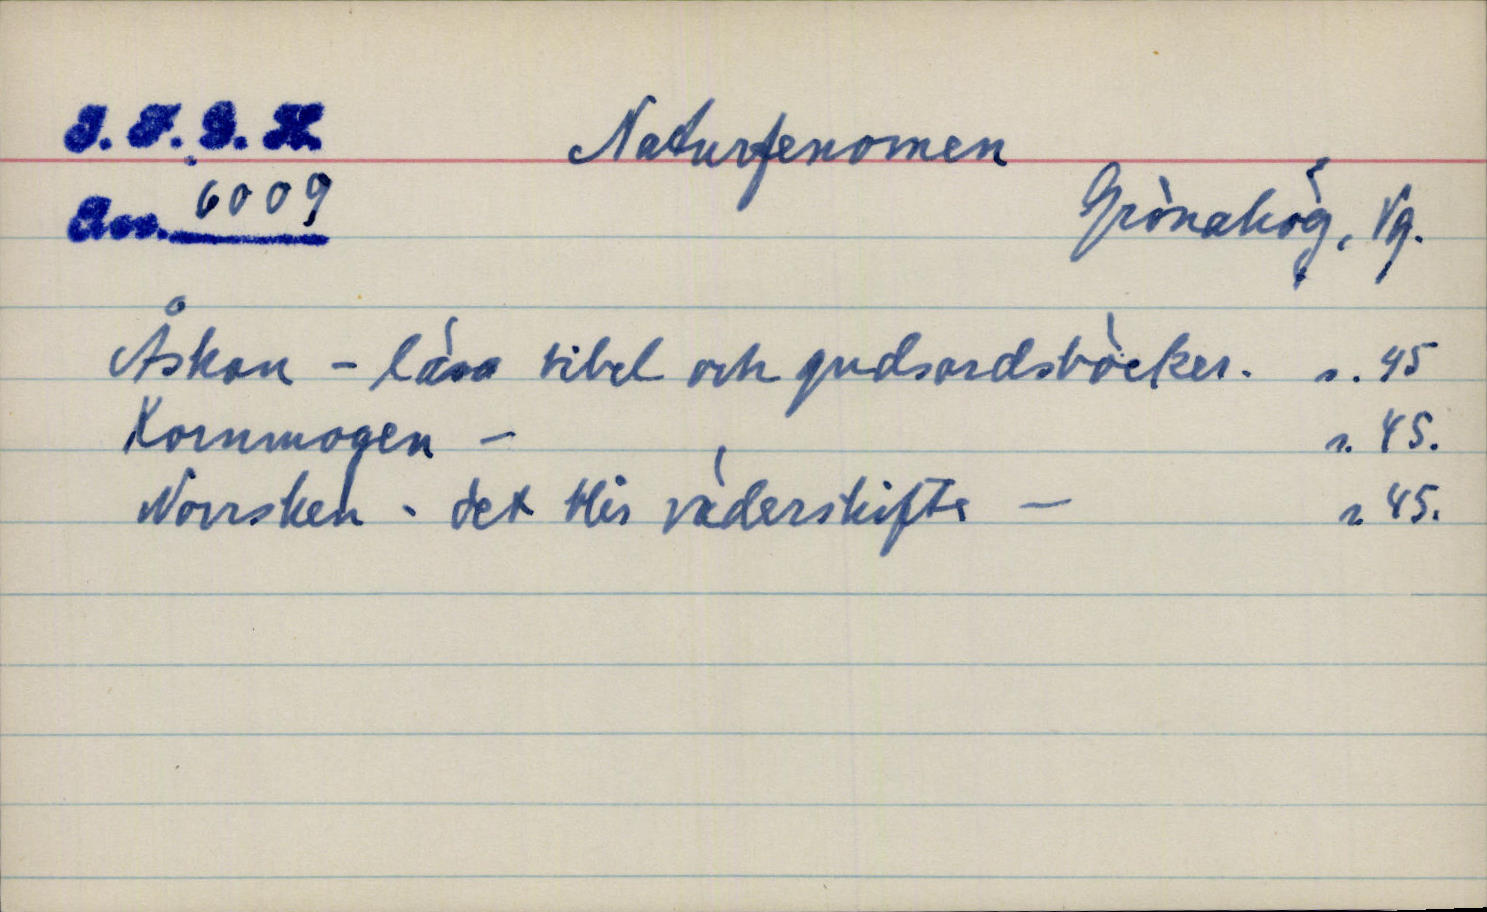 I. F. G. H.
Naturfenomen
Acc. 6009
Grönahög, Vg.
Åskan - läsa bibel och gudsordsböcker. s. 45
Kornmogen - s. 45.
Norrsken - det blir väderskifte - s 45.